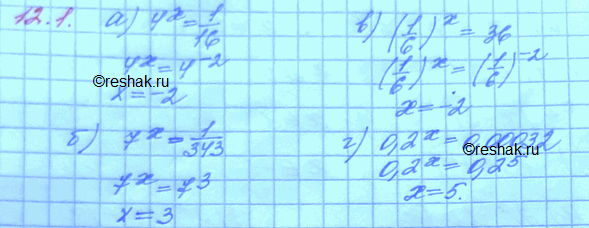 12.1. а) 4^x = 1/16
4^x = 4^-2
x = -2
б) 7^x = 1/343
7^x = 7^3
x = 3
в) (1/6)^x = 36
(1/6)^x = (1/6)^-2
x = -2
г) 0,2^x = 0,00032
0,2^x = 0,2^5
x = 5.
©reshak.ru
©reshak.ru
©reshak.ru
©reshak.ru